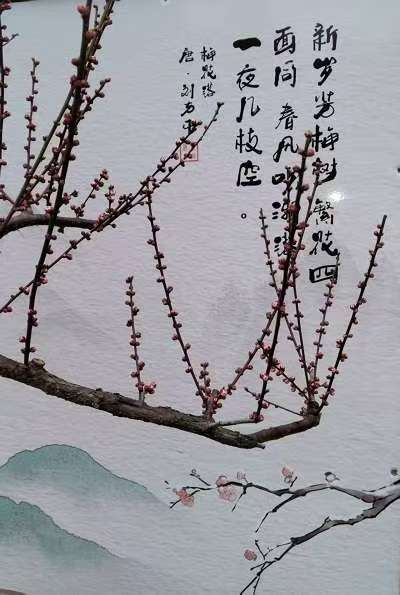 新岁芳梅树 繁花四
面同 春风吹渐落
一夜几枝空。
梅花落
唐·刘方平